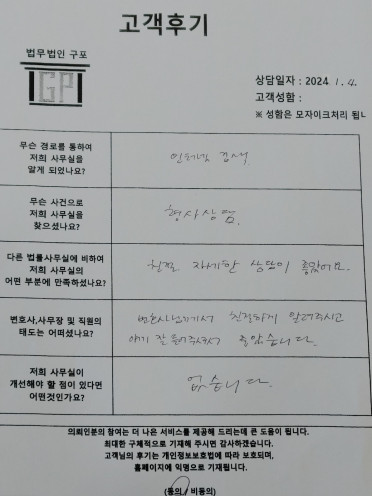 고객후기
법무법인 구포
GP
상담일자 : 2024. 1. 4.
고객성함 :
※ 성함은 모자이크처리 됩니
무슨 경로를 통하여
저희 사무실을
알게 되었나요?
인터넷 검색
무슨 사건으로
저희 사무실을
찾으셨나요?
형사상담.
다른 법률사무실에 비하여
저희 사무실의
어떤 부분에 만족하셨나요?
친절 자세한 상담이 좋았어요.
변호사,사무장 및 직원의
태도는 어떠셨나요?
변호사님께서 친절하게 알려주시고
얘기 잘 들어주셔서 좋았습니다.
저희 사무실이
개선해야 할 점이 있다면
어떤것인가요?
없습니다.
의뢰인분의 참여는 더 나은 서비스를 제공해 드리는데 큰 도움이 됩니다.
최대한 구체적으로 기재해 주시면 감사하겠습니다.
고객님의 후기는 개인정보보호법에 따라 보호되며,
홈페이지에 익명으로 기재됩니다.
(동의 / 비동의)